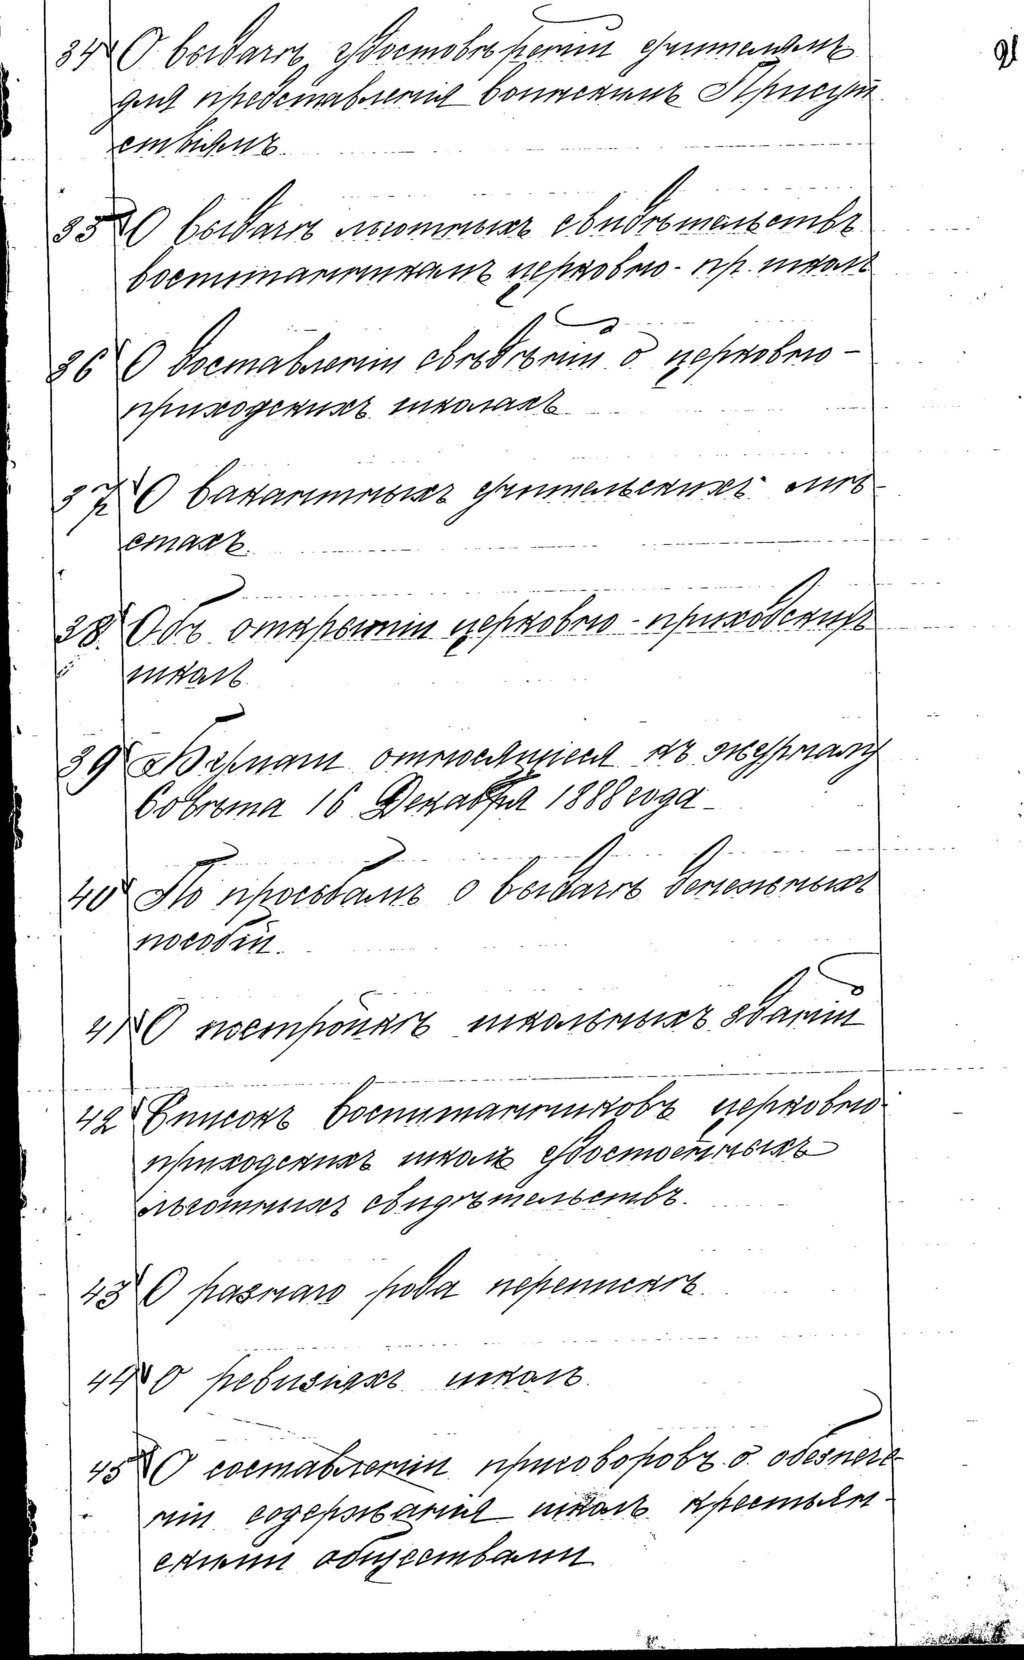 34 О выдачѣ удостовѣреній учителямъ
для представленія воинскимъ Присут
ствіямъ
35 О выдачѣ льготныхъ свидѣтельствъ
воспитанникамъ церковно-пр. школъ
36 О доставленіи свѣдѣній о церковно-
приходскихъ школахъ
37 О вакантныхъ учительскихъ мѣ-
стахъ.
38. Объ открытіи церковно-приходскихъ
школъ
39 Бумаги относящіеся къ журналу
Совѣта 16 Декабря 1888 года
40 По просьбамъ о выдачѣ денежныхъ
пособій.
41 О постройкѣ школьныхъ зданій
42 Списокъ воспитанниковъ церковно-
приходскихъ школъ удостоенныхъ
льготныхъ свидѣтельствъ.
43 О разнаго рода перепискѣ
44 О ревизіяхъ школъ
45 О составленіи приговоровъ о обезпече-
ніи содержанія школъ крестьян-
скими обществами